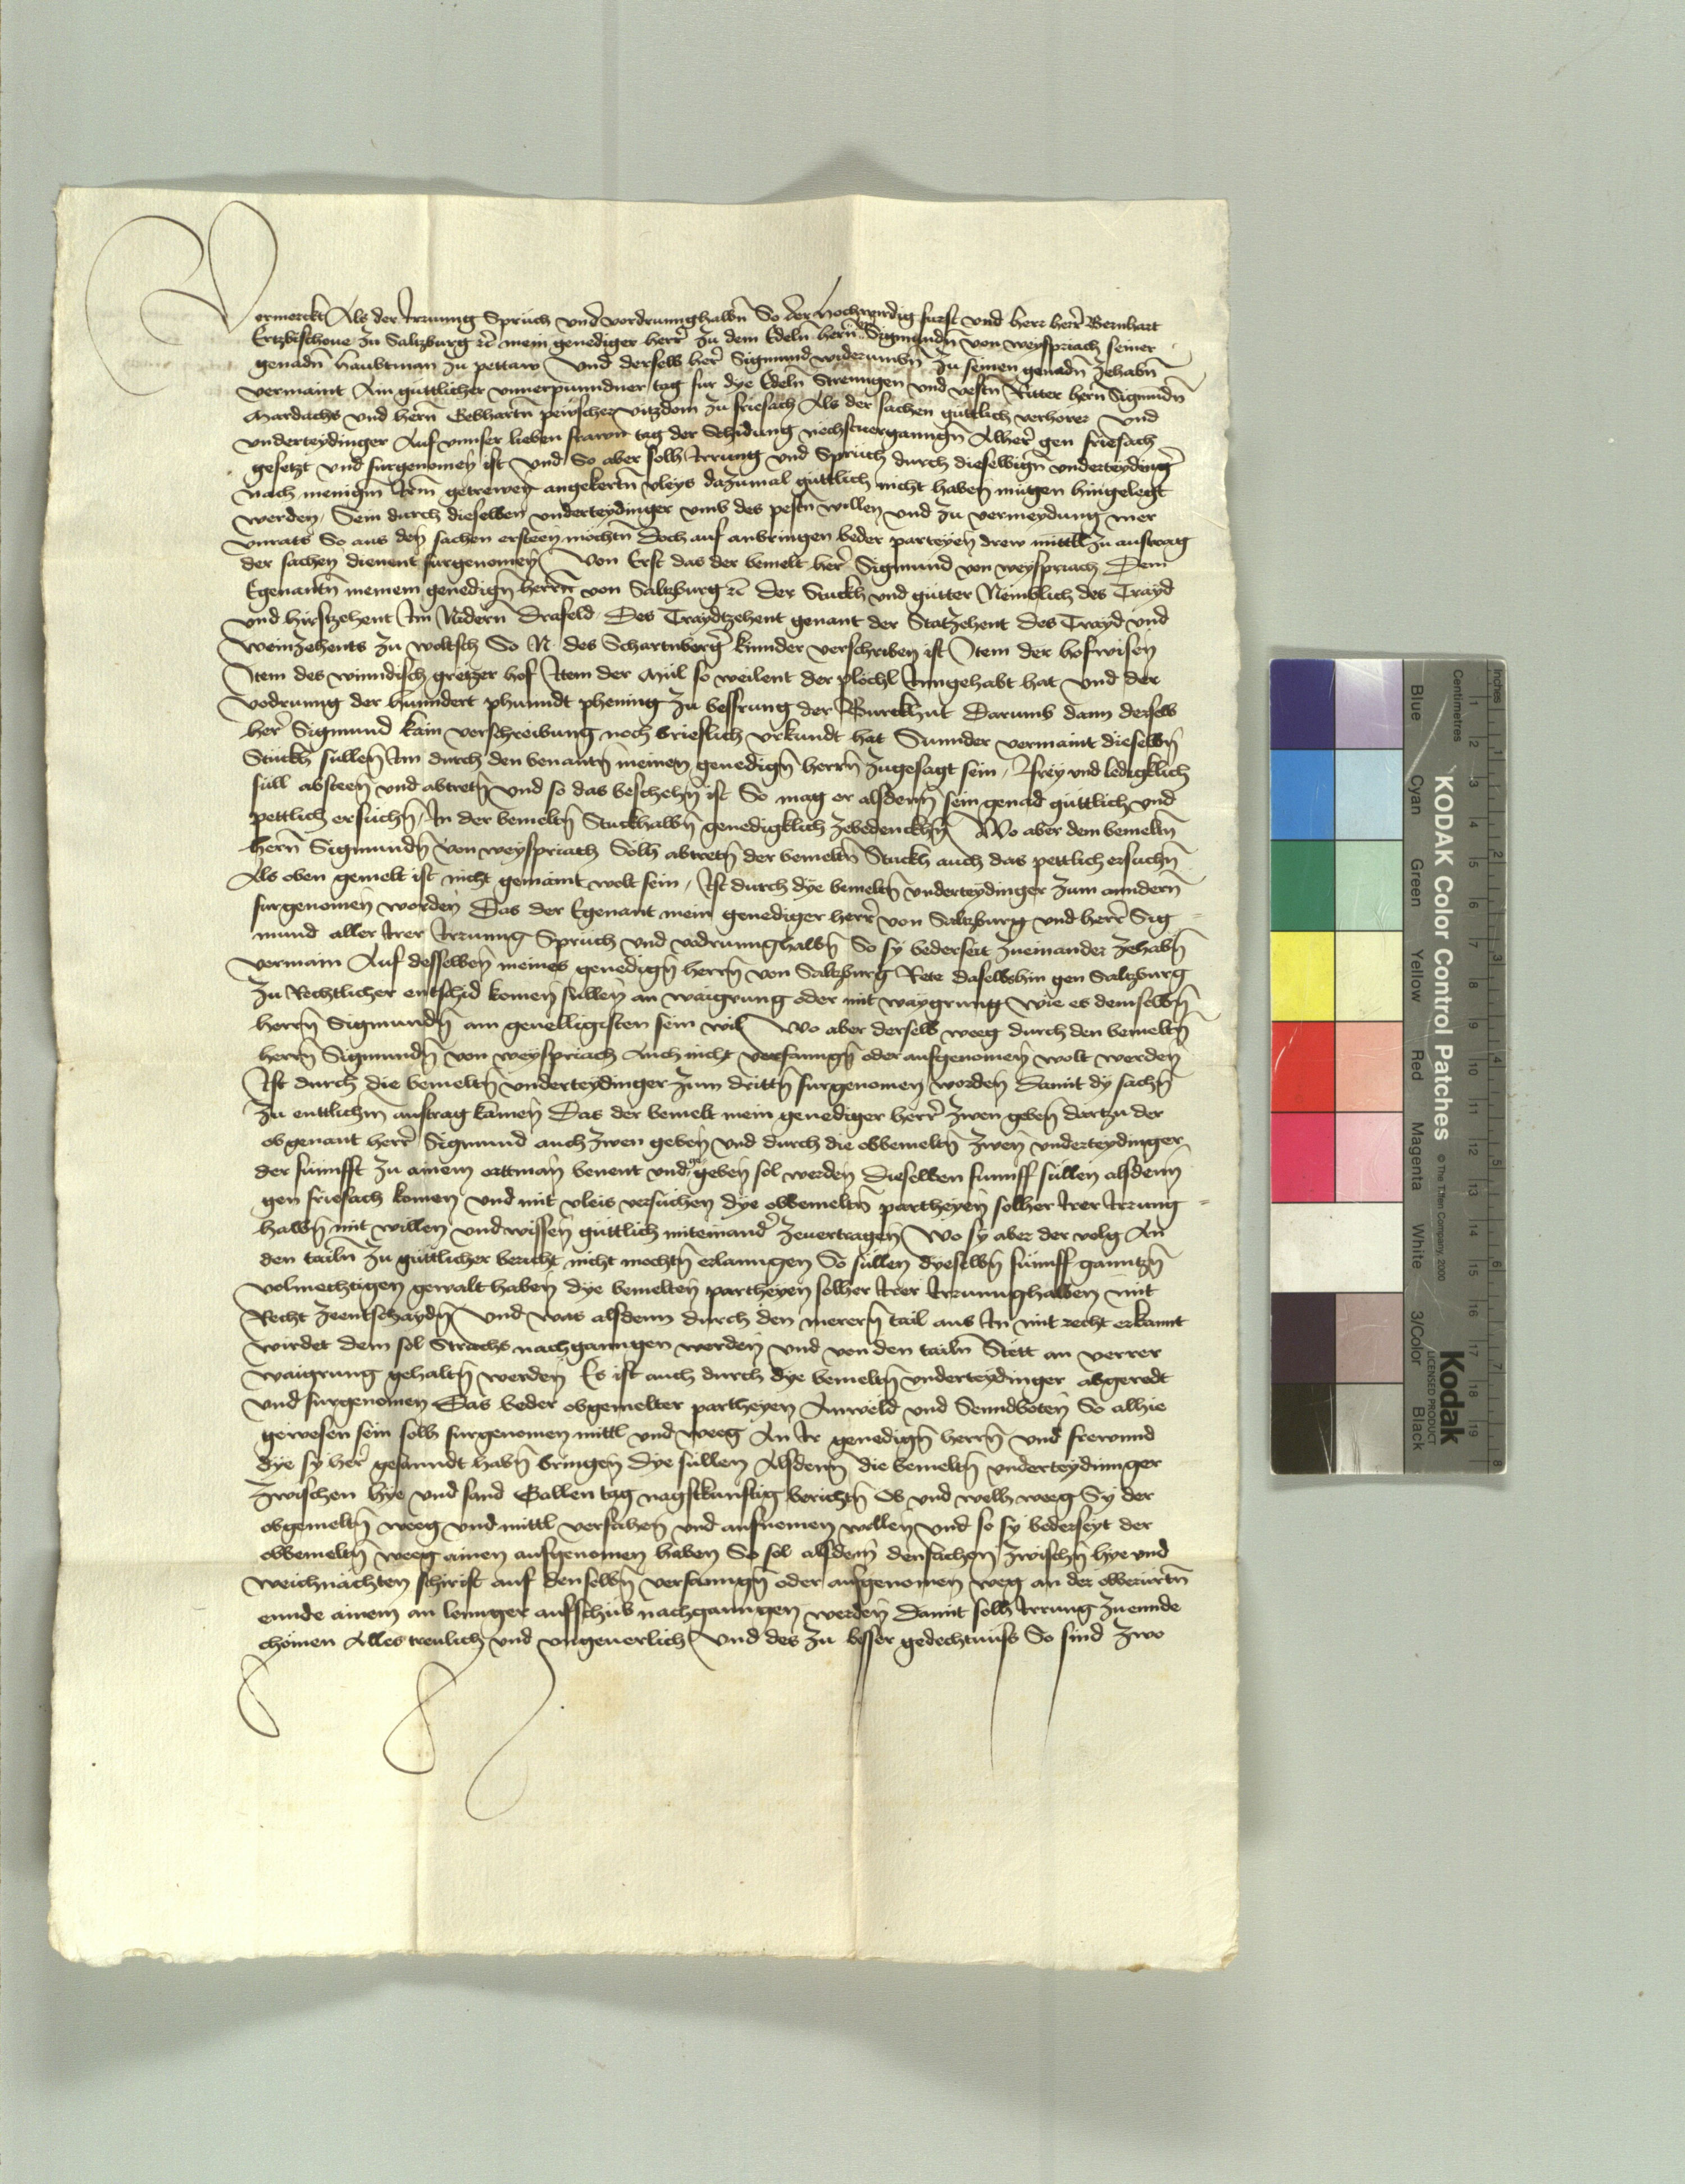 Vermerckt Als der Irrunng Spruch und vordrunnghalbn̄ So der Hochwirdig furst und herr herr̄ Bernhart
Ertzbischoue zu Saltzburg ꝛc̄ mein genediger herr̄ zu dem Edeln̄ hern̄ Sigmundn̄ von weyspriach seiner
genadn̄ haubtman zu pettaw Und derselb her̄ Sigmund widerumbn̄ zu seinen genadn̄ zehabn̄
vermaint Ain guttlicher unuerpunndner tag fur dye Edeln̄ Strenngen und vestn̄ Ritter hern̄ Sigmundn̄
Mardachs und hern̄ Gebhartn̄ pewscher vitzdom zu friesach Als der sachen guttlich verhorer und
underteydinger Auf unnser lieben frawn̄ tag der Schidung nechstuerganngn̄ Alher̄ gen friesach
gesetzt und furgenomen ist Und So aber solh Irrung und Spruch durch dieselbign̄ underteydinger̄
nach menigm Irm̄ getrewen angekertn̄ vleys dazumal guttlich nicht haben mugen hingelegt
werden / Sein durch dieselben underteydinger umb des pestn̄ willen und zu vermeydung mer
unrats So aus den sachen ersteen mochtn̄ doch auf anbringen beder parteyen drew mittl zu austrag
der sachen dienent furgenomen Von Erst das der bemelt her̄ Sigmund von weyspriach Dem
Egenantn̄ meinem genedign̄ herrn̄ von Saltzburg ꝛc̄ der Stuckh und gutter Nemblich des Trayd
und hirszehent Im Nidern̄ Drafeld Des Traydtzehent genant der Statzehent des Trayd und
Weinzehents zu woltsch So N. des Schartnberger̄ kinnder verschriben ist Item der hofwisen
Item des winndisch gretzer hof Item der Mul so weilent der plochl Inngehabt hat und der
Vodrunng der hunndert phunndt phening zu bessrung der Burckhut Darumb dann derselb
her̄ Sigmund kain verschreibung noch brieflich urkundt hat Sunnder vermaint dieselbn̄
Stuckh sullen Im durch den benantn̄ meinen genedign̄ herrn̄ zugesagt sein / Frey und ledigklich
sull absteen und abtretn̄ und so das beschehn̄ ist So mag er alsdenn̄ sein genad guttlich und
pettlich ersuchn̄ In der bemeltn̄ Stuckhalbn̄ genedigklich zebedenckhn̄ Wo aber dem bemeltn̄
hern̄ Sigmundn̄ von weyspriach Solh abtretn̄ der bemeltn̄ Stuckh auch das pettlich ersuchn̄
Als oben gemelt ist nicht gemaint wolt sein / Ist durch dye bemeltn̄ underteydinger zum anndern̄
furgenomen worden Das der Egenant mein genediger herr̄ von Saltzburg und herr̄ Sig
mund aller Irer Irrunng Spruch und vodrunnghalbn̄ So sy bederseit zueinander zehabn̄
vermain Auf desselben meines genedign̄ herrn̄ von Saltzburg Rete daselbshin gen Saltzburg
zu Rechtlicher entschid komen sullen an waigrung oder mit waygrung wie es demselbn̄
herrn̄ Sigmundn̄ am geuelligisten sein wil Wo aber derselb weeg durch den bemeltn̄
herrn̄ Sigmundn̄ von weyspriach Auch nicht verfanngn̄ oder aufgenomen wolt werden
Ist durch die bemeltn̄ underteydinger zum drittn̄ furgenomen worden Damit dy sachn̄
zu enttlichm austrag kamen Das der bemelt mein genediger herr̄ zwen geben dartzu der
obgenant herr̄ Sigmund auch zwen geben und durch die obbemeltn̄ zwen underteydinger
der funnfft zu ainem obman benent und geben sol werden Dieselben funnff sullen alsdenn̄
gen friesach komen und mit vleis versuchen dye obbemeltn̄ partheyen solher Irer Irrung
halbn̄ mit willen und wissen guttlich miteinander̄ zeuertragen Wo sy aber der volg An
den tailn̄ zu guttlicher bericht nicht mochtn̄ erlanngen So sullen dyeselbn̄ funnff ganntzn̄
volmechtigen gewalt haben dye bemelten partheyen solher Irer Irrunnghalben mit
Recht zeentschaydn̄ Und was alsdenn durch den merern̄ tail aus In mit recht erkannt
wirdet dem sol Strachs nachganngen werden und von den tailn̄ Stett an verrer
waigrung gehaltn̄ werden Es ist auch durch dye bemeltn̄ underteydinger abgeredt
und furgenomen Das beder obgemelter partheyen Anweld und Senndboten So alhie
gewesen sein solh furgenomen mittl und weeg An Ir genedign̄ herrn̄ und frewnnd
dye sy her̄ gesanndt habn̄ bringen Dye sullen Alsdenn̄ die bemeltn̄ underteydinnger
zwischen hye und sand Gallen tag nagstkunftig berichtn̄ Ob und welh weeg Sy der
obgemeltn̄ weeg und mittl verfahen und aufnemen wollen und so sy bederseyt der
obbemeltn̄ weeg ainen aufgenomen haben So sol alsdenn̄ den sachen zwischn̄ hye und
weichnachten schirist auf denselbn̄ verfanngn̄ oder aufgenomen weg an der obberurtn̄
ennde ainem an lennger aufschub nachganngen werden Damit solh Irrung zu ennde
chömen Alles treulich und ungeuerlich Und des zu besser gedechtnuss So sind zwo
KODAK Color Control Patches
© The Tiffen Company, 2000
Kodak
LICENSED PRODUCT
Inches
Centimetres
Blue
Cyan
Green
Yellow
Red
Magenta
White
3/Color
Black